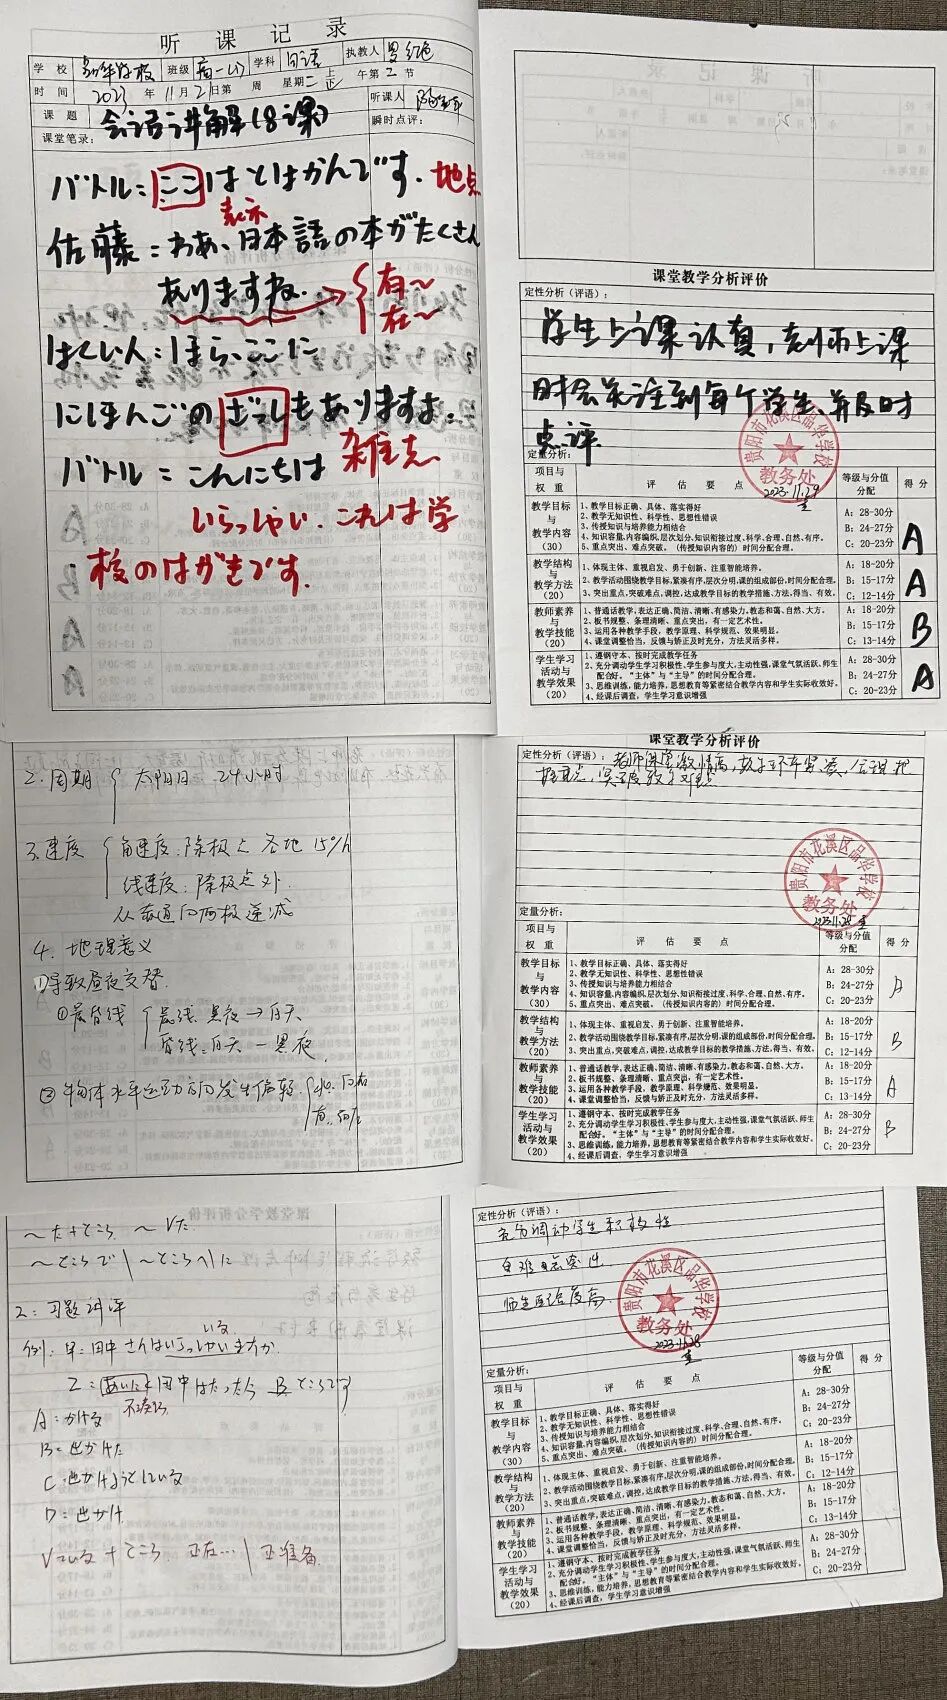 听课记录
学校
班级 高一(1)
学科 日语
执教人
时间 2023 年 11月2日第 周 星期二 上 午第 2 节
课题 会话讲解(8课)
听课人
课堂笔录:
瞬时点评:
バトル:ここはとしょかんです. 地点
表示
佐藤:わあ、日本語の本がたくさん
ありますね. 有~
在~
はくしん:ほら、ここに
にほんごのざっしもありますよ.
バトル:こんにちは 雑志
いらっしゃい. これは学
校のはがきです.
课堂教学分析评价
定性分析(评语):
学生上课认真,老师上课
时会关注到每个学生、并及时
点评
贵阳市花溪区品华学校
教务处
2023.11.29
定量分析:
项目与权重
评估要点
等级与分值分配
得分
教学目标与教学内容(30)
1、教学目标正确、具体、落实得好
2、教学无知识性、科学性、思想性错误
3、传授知识与培养能力相结合
4、知识容量,内容编织,层次划分,知识衔接过度,科学、合理、自然、有序。
5、重点突出、难点突破。(传授知识内容的)时间分配合理。
A: 28-30分
B: 24-27分
C: 20-23分
A
教学结构与教学方法(20)
1、体现主体、重视启发、勇于创新、注重智能培养。
2、教学活动围绕教学目标,紧凑有序,层次分明,课的组成部份,时间分配合理。
3、突出重点,突破难点,调控,达成教学目标的教学措施、方法,得当、有效。
A: 18-20分
B: 15-17分
C: 12-14分
A
教师素养与教学技能(20)
1、普通话教学,表达正确、简洁、清晰、有感染力。教态和蔼、自然、大方。
2、板书规整、条理清晰、重点突出,有一定艺术性。
3、运用各种教学手段,教学原理、科学规范、效果明显。
4、课堂调整恰当,反馈与矫正及时充分,方法灵活多样。
A: 18-20分
B: 15-17分
C: 13-14分
B
学生学习活动与教学效果(20)
1、遵钢守本、按时完成教学任务
2、充分调动学生学习积极性,学生参与度大,主动性强,课堂气氛活跃,师生配合好。“主体”与“主导”的时间分配合理。
3、思维训练,能力培养,思想教育等紧密结合教学内容和学生实际收效好。
4、经课后调查,学生学习意识增强
A: 28-30分
B: 24-27分
C: 20-23分
A
2.周期 太阳日 24小时
3.速度 角速度:除极点各地15°/h
线速度:除极点外
从赤道向两极递减
4.地理意义
(1)导致昼夜交替
①晨昏线 晨线:黑夜→白天
昏线:白天—黑夜
②物体水平运动方向发生偏转 北:向右
南:向左
课堂教学分析评价
定性分析(评语):老师课堂激情高,
贵阳市花溪区品华学校
教务处
2023.11.28
定量分析:
项目与权重
评估要点
等级与分值分配
得分
教学目标与教学内容(30)
1、教学目标正确、具体、落实得好
2、教学无知识性、科学性、思想性错误
3、传授知识与培养能力相结合
4、知识容量,内容编织,层次划分,知识衔接过度,科学、合理、自然、有序。
5、重点突出、难点突破。(传授知识内容的)时间分配合理。
A: 28-30分
B: 24-27分
C: 20-23分
A
教学结构与教学方法(20)
1、体现主体、重视启发、勇于创新、注重智能培养。
2、教学活动围绕教学目标,紧凑有序,层次分明,课的组成部份,时间分配合理。
3、突出重点,突破难点,调控,达成教学目标的教学措施、方法,得当、有效。
A: 18-20分
B: 15-17分
C: 12-14分
B
教师素养与教学技能(20)
1、普通话教学,表达正确、简洁、清晰、有感染力。教态和蔼、自然、大方。
2、板书规整、条理清晰、重点突出,有一定艺术性。
3、运用各种教学手段,教学原理、科学规范、效果明显。
4、课堂调整恰当,反馈与矫正及时充分,方法灵活多样。
A: 18-20分
B: 15-17分
C: 13-14分
A
学生学习活动与教学效果(20)
1、遵钢守本、按时完成教学任务
2、充分调动学生学习积极性,学生参与度大,主动性强,课堂气氛活跃,师生配合好。“主体”与“主导”的时间分配合理。
3、思维训练,能力培养,思想教育等紧密结合教学内容和学生实际收效好。
4、经课后调查,学生学习意识增强
A: 28-30分
B: 24-27分
C: 20-23分
B
~た+ところ ~Vた
~ところで ~ところへ/に
2:习题讲评
例:甲:田中さんはいらっしゃいますか. いる
乙:あいにく田中はたった今 B ところです
不凑巧
A:かける
B:出かけた
C:出かけようとしている
D:出かけ
Vている+ところ 正在… 正准备
定性分析(评语):
充分调动学生积极性
重难点突出
师生互动度高
贵阳市花溪区品华学校
教务处
2023.11.28
定量分析:
项目与权重
评估要点
等级与分值分配
得分
教学目标与教学内容(30)
1、教学目标正确、具体、落实得好
2、教学无知识性、科学性、思想性错误
3、传授知识与培养能力相结合
4、知识容量,内容编织,层次划分,知识衔接过度,科学、合理、自然、有序。
5、重点突出、难点突破。(传授知识内容的)时间分配合理。
A: 28-30分
B: 24-27分
C: 20-23分
教学结构与教学方法(20)
1、体现主体、重视启发、勇于创新、注重智能培养。
2、教学活动围绕教学目标,紧凑有序,层次分明,课的组成部份,时间分配合理。
3、突出重点,突破难点,调控,达成教学目标的教学措施、方法,得当、有效。
A: 18-20分
B: 15-17分
C: 12-14分
教师素养与教学技能(20)
1、普通话教学,表达正确、简洁、清晰、有感染力。教态和蔼、自然、大方。
2、板书规整、条理清晰、重点突出,有一定艺术性。
3、运用各种教学手段,教学原理、科学规范、效果明显。
4、课堂调整恰当,反馈与矫正及时充分,方法灵活多样。
A: 18-20分
B: 15-17分
C: 13-14分
学生学习活动与教学效果(20)
1、遵钢守本、按时完成教学任务
2、充分调动学生学习积极性,学生参与度大,主动性强,课堂气氛活跃,师生配合好。“主体”与“主导”的时间分配合理。
3、思维训练,能力培养,思想教育等紧密结合教学内容和学生实际收效好。
4、经课后调查,学生学习意识增强
A: 28-30分
B: 24-27分
C: 20-23分